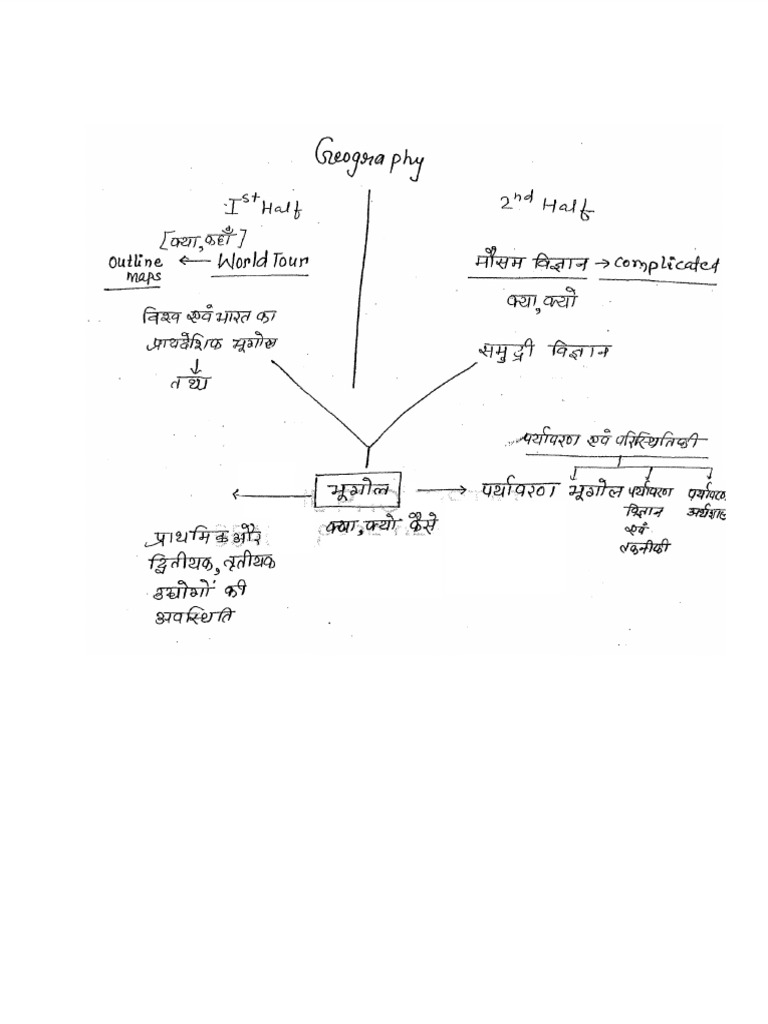 Geography
Ist Half
2nd Half
[क्या, कहाँ]
outline maps ← World Tour
मौसम विज्ञान → complicated
क्या, क्यो
विश्व एवं भारत का
प्रायदेशिक भूगोल
↓
तथ्य
समुद्री विज्ञान
पर्यावरण एवं परिस्थितिकी
भूगोल
क्या, क्यो कैसे
पर्यावरण भूगोल
पर्यावरण
विज्ञान
एवं
तकनीकी
प्राथमिक और
द्वितीयक, तृतीयक
उद्योगों की
अवस्थिति